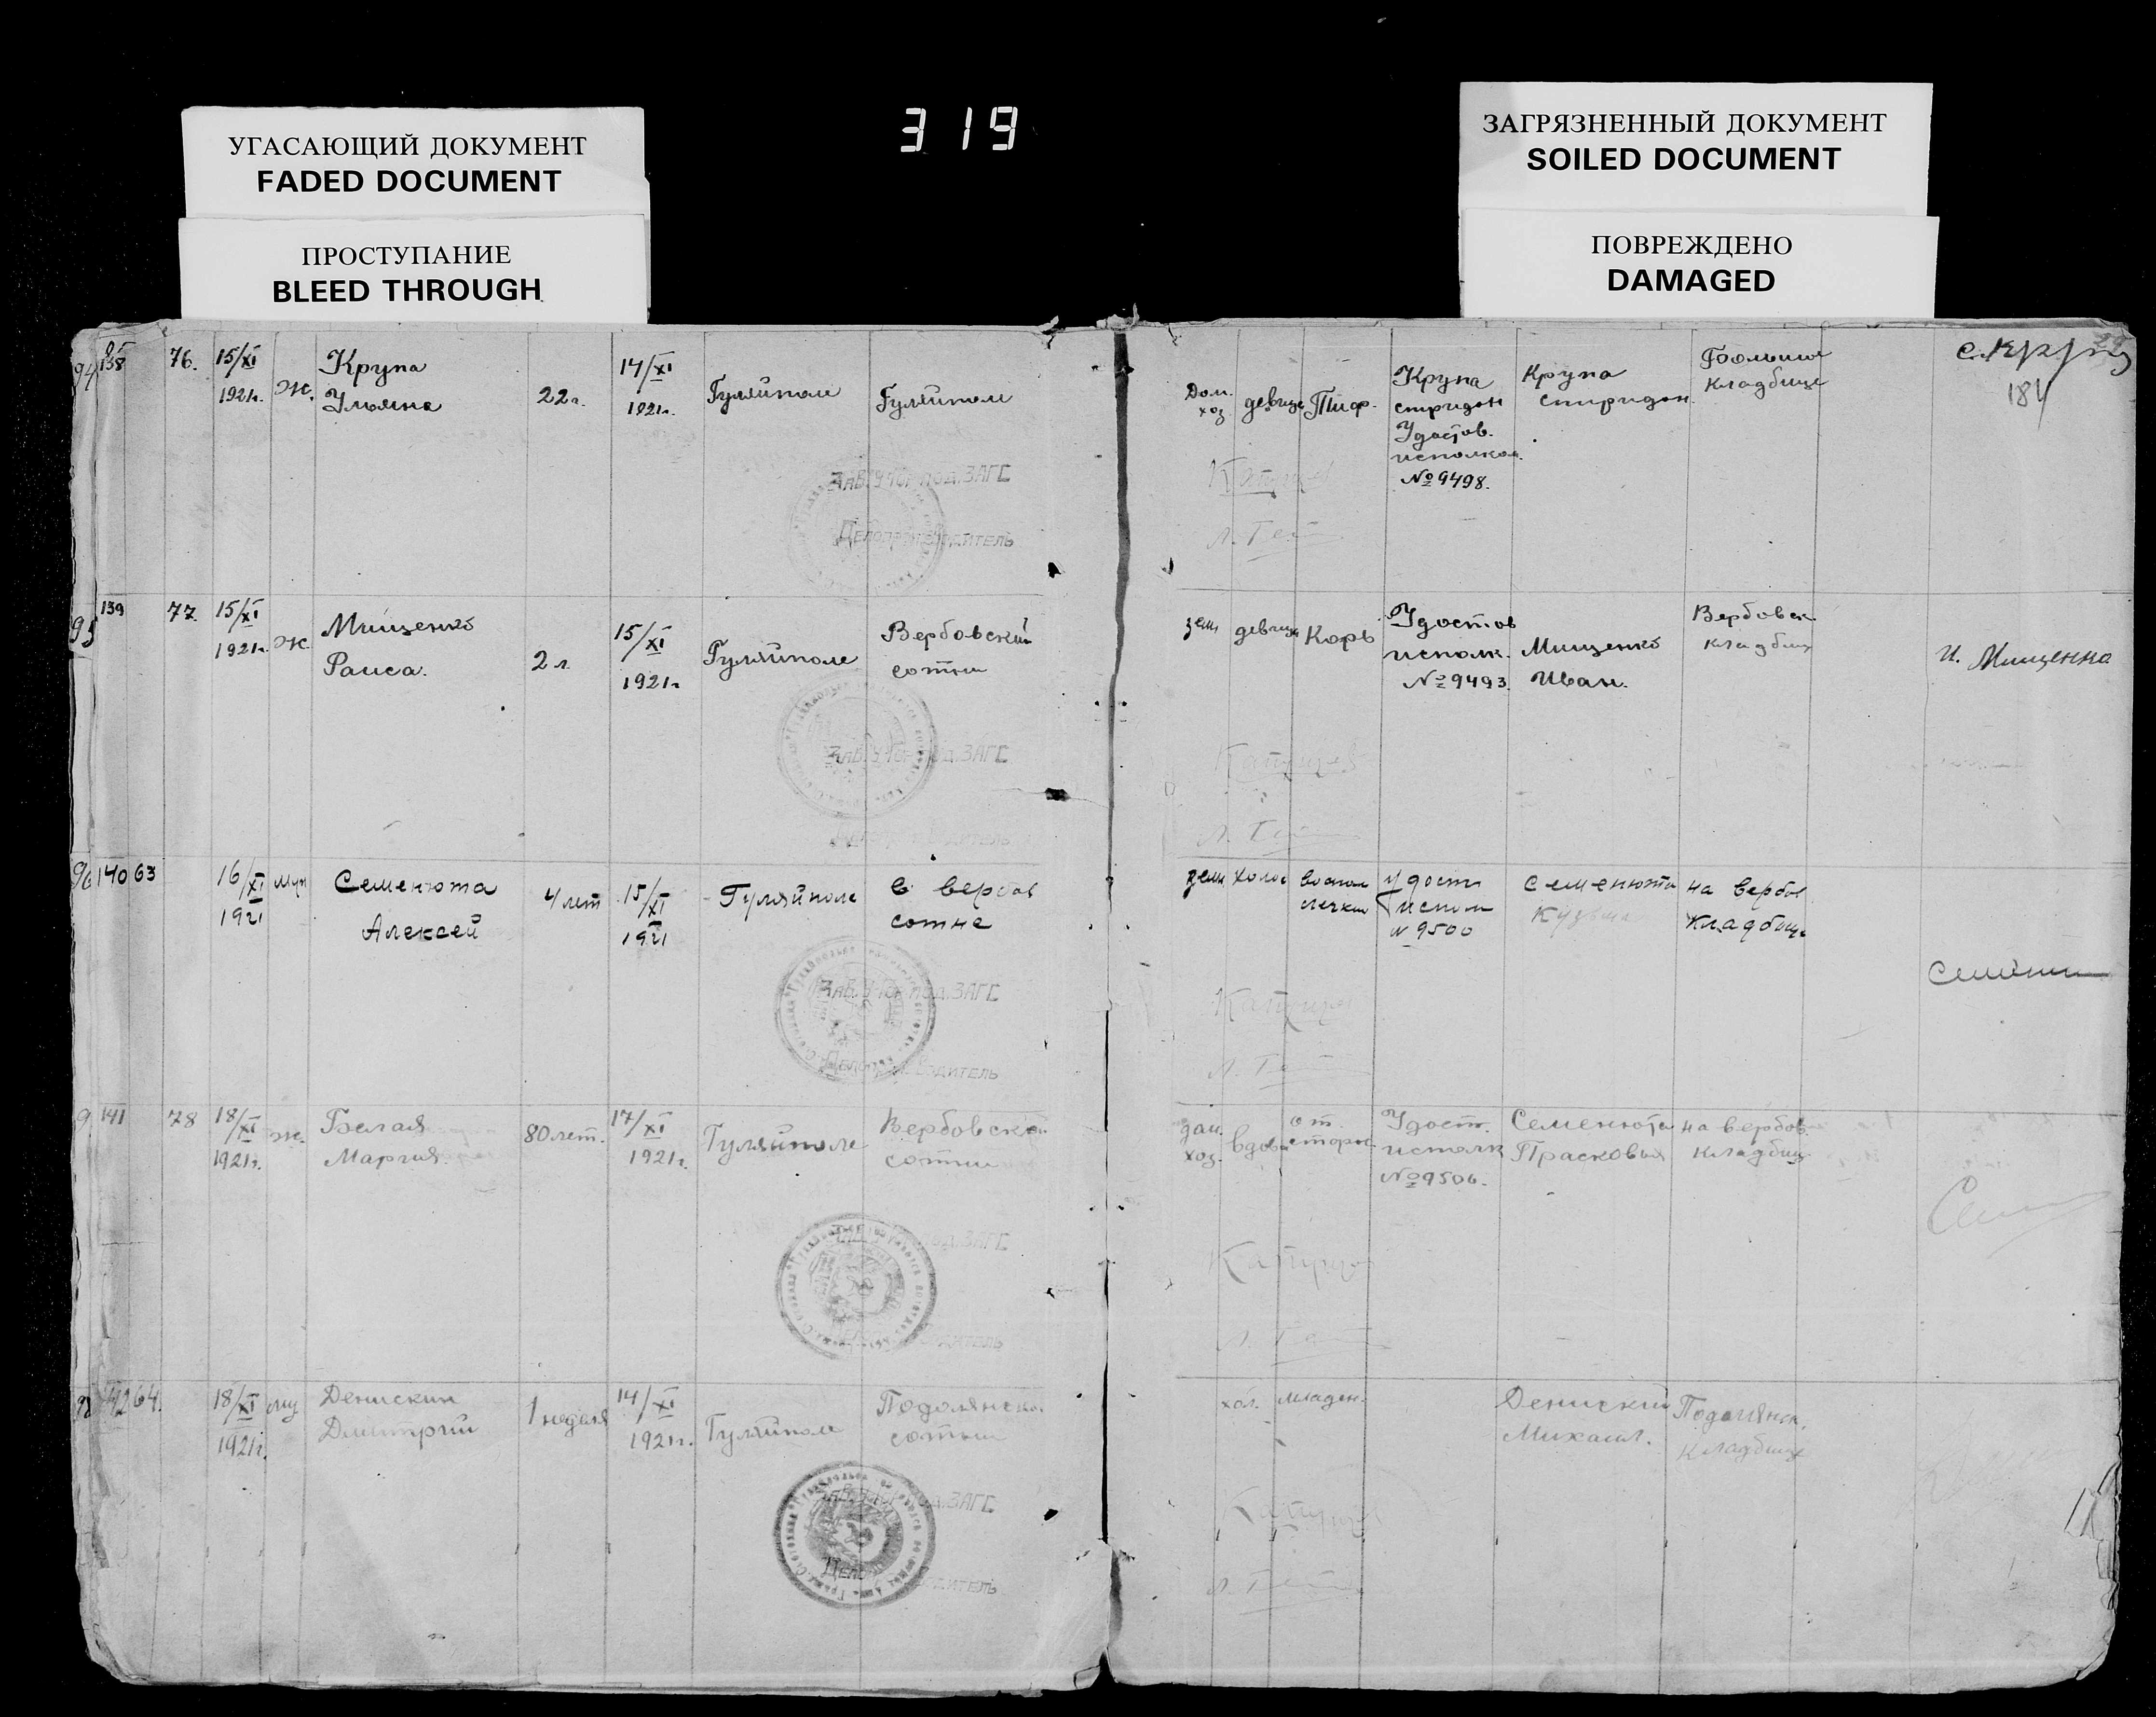 319
УГАСАЮЩИЙ ДОКУМЕНТ
FADED DOCUMENT
ПРОСТУПАНИЕ
BLEED THROUGH
ЗАГРЯЗНЕННЫЙ ДОКУМЕНТ
SOILED DOCUMENT
ПОВРЕЖДЕНО
DAMAGED
94 138 76. 15/XI 1921г. Ж.
Крупа
Ульяна
22 г.
14/XI
1921г.
Гуляйполе
Гуляйполе
Дом.
хоз.
девица
Тиф.
Крупа
спиридон
Удостов.
исполком.
№ 9498.
Крупа
спиридон.
Большое
кладбище
184
Зав. под.ЗАГС
Делопроизводитель
95 139 77. 15/XI 1921г. Ж
Мищенко
Раиса.
2 г.
15/XI
1921г
Гуляйполе
Вербовский
сотни
зем
девица
Корь
Удостов
исполк.
№ 9493.
Мищенко
Иван.
Вербовск
кладбищ
И. Мищенко
Зав. под.ЗАГС
96 140 63 16/XI 1921 муж
Семенюта
Алексей
4 лет
15/XI
1921
Гуляйполе
в вербов
сотне
зем
холос
воспал
легких
удост
исполк
№ 9500
Семенюта
Кузьма
на вербов
кладбище
Зав. под.ЗАГС
Делопроизводитель
141 78 18/XI 1921г. Ж.
Белая
Мария.
80 лет.
17/XI
1921г.
Гуляйполе
Вербовская
сотни
дом.
хоз.
вдова
от
старос
Удост.
исполк
№ 9506.
Семенюта
Прасковья
на вербов.
кладбищ
под.ЗАГС
142 64. 18/XI 1921г. муж
Денискин
Дмитрий
1 неделя
14/XI
1921г.
Гуляйполе
Подолянск.
сотни
хол.
младен.
Денискин
Михаил.
Подолянск.
Кладбище
под.ЗАГС